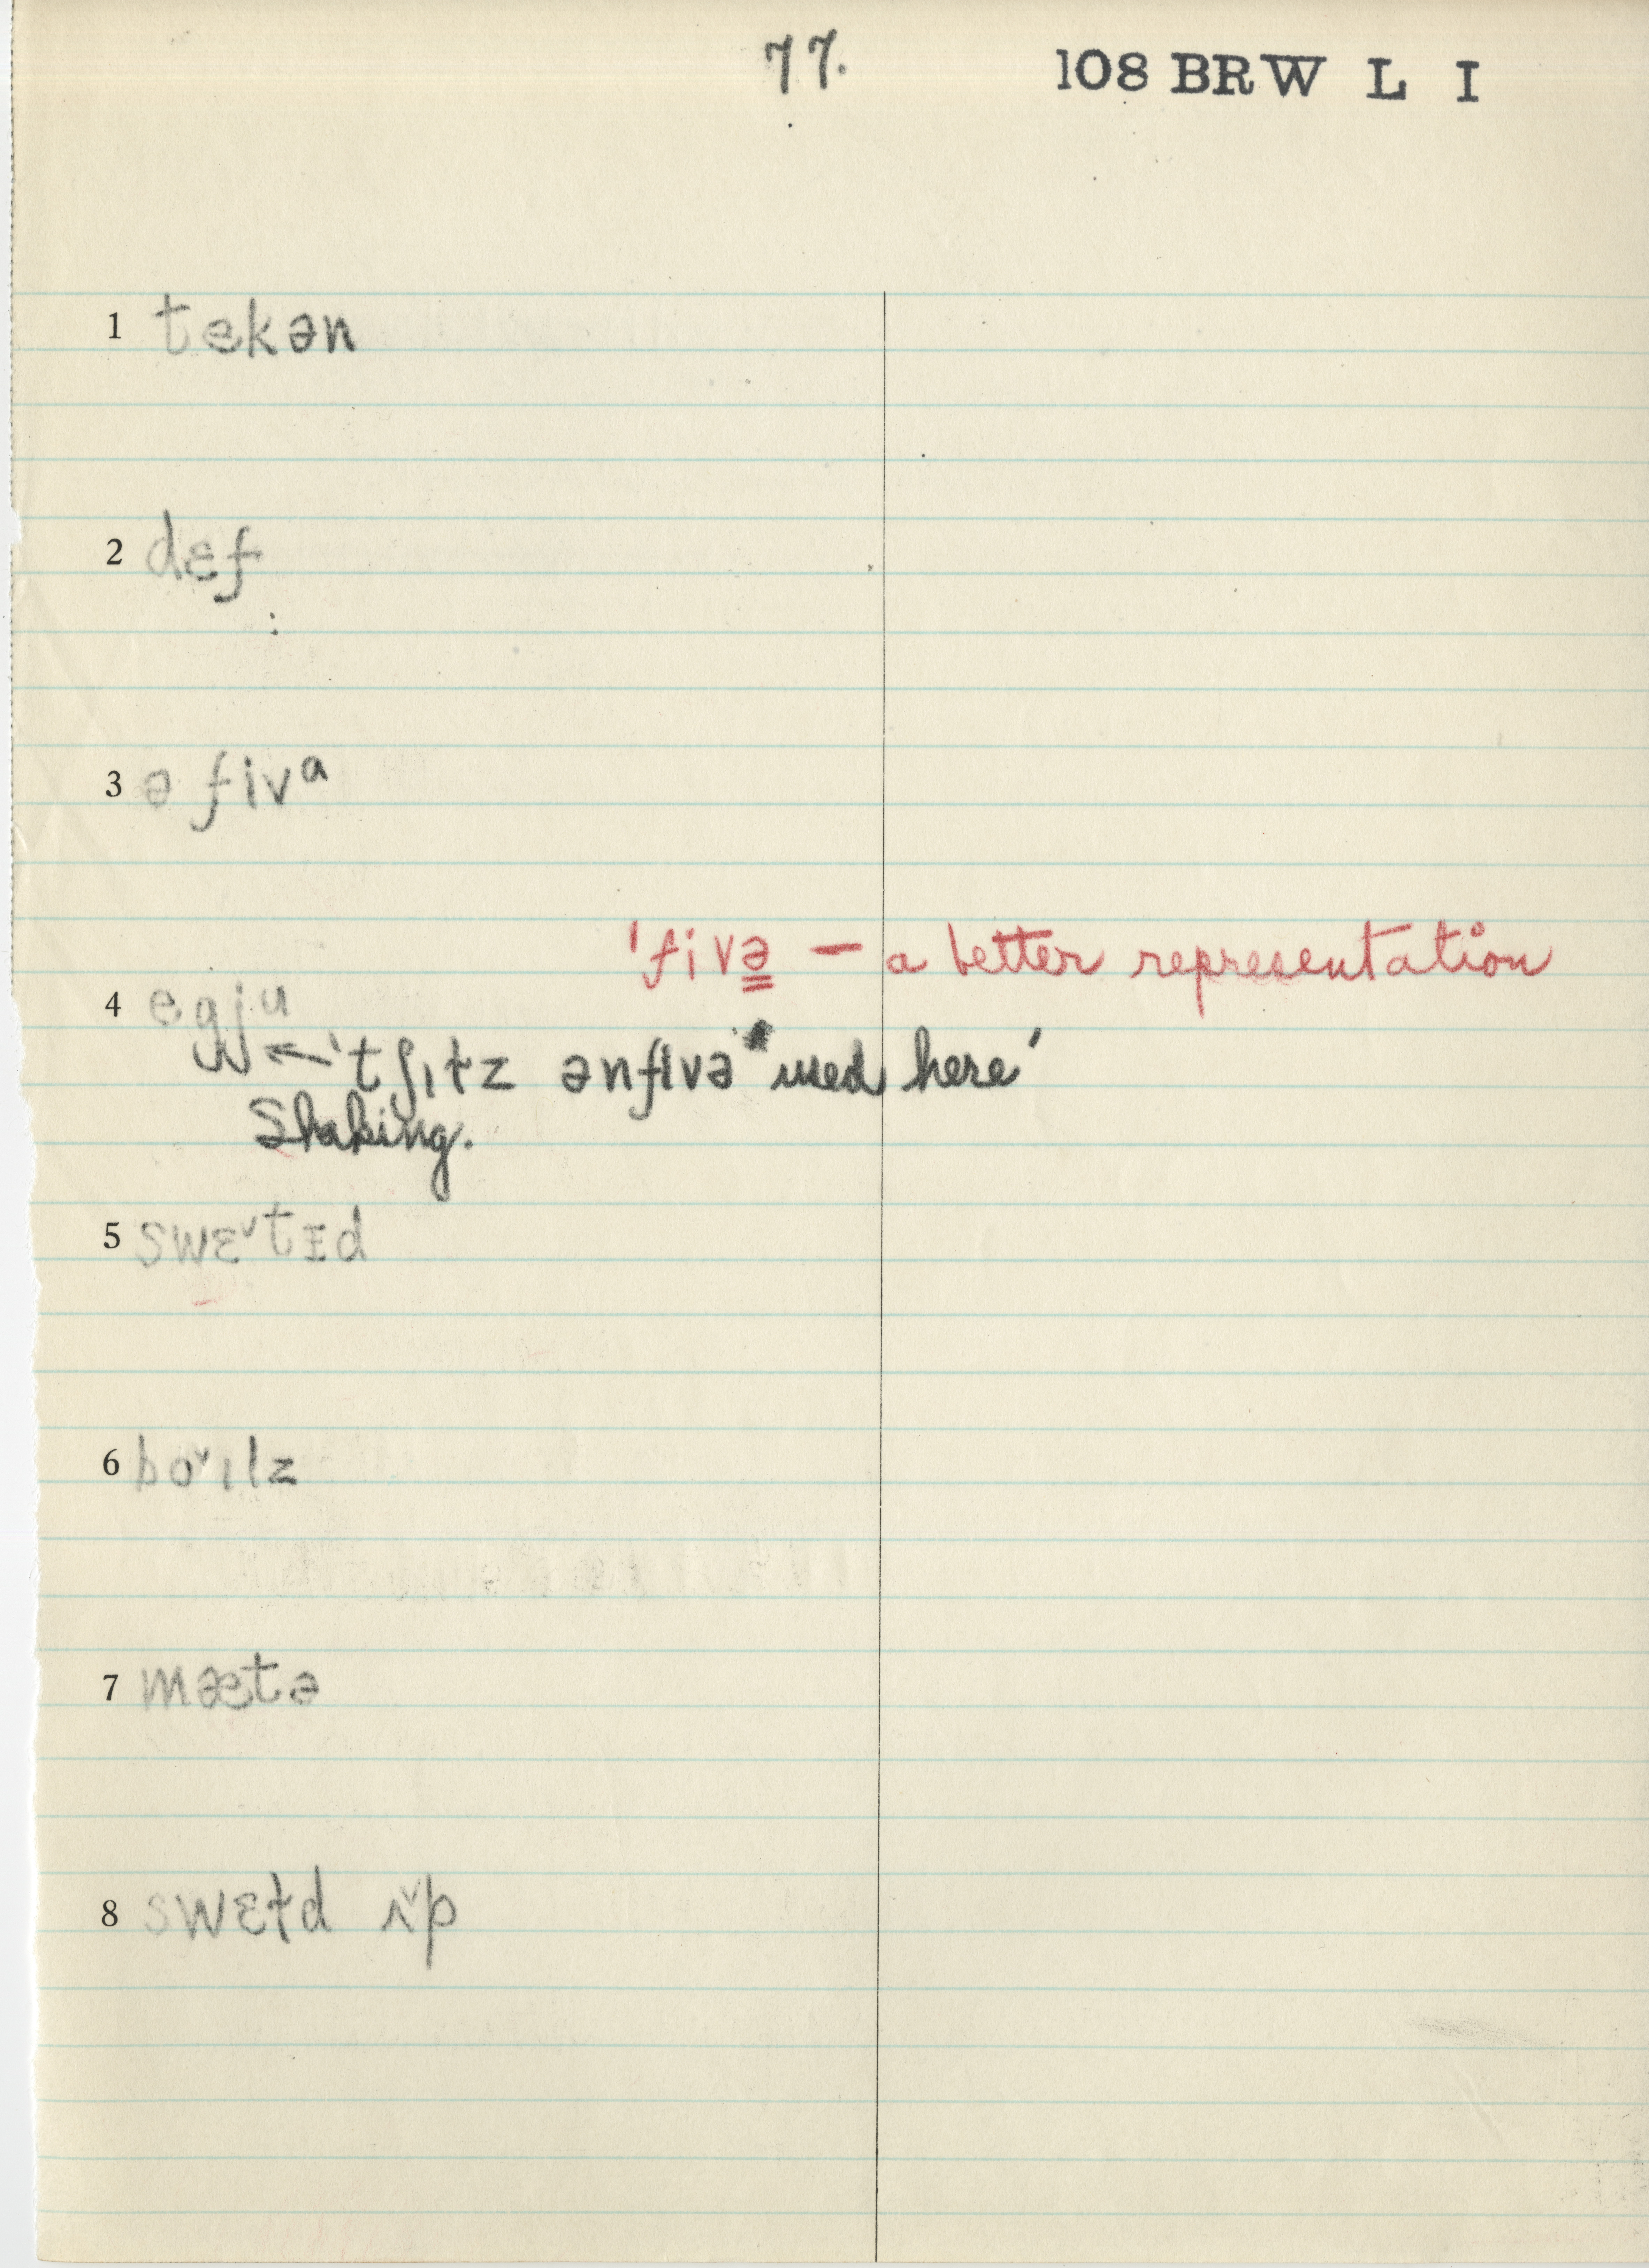 77. 108 BRW L I
1 tekən
2 dɛf
3 ə fivᵃ
'fivə — a better representation
4 egju
← 'tʃɪtz ənfivə used here'
Shaking.
5 swɛ˅tɪd
6 bo˅ɪlz
7 mætə
8 swɛtd ʌ˅p